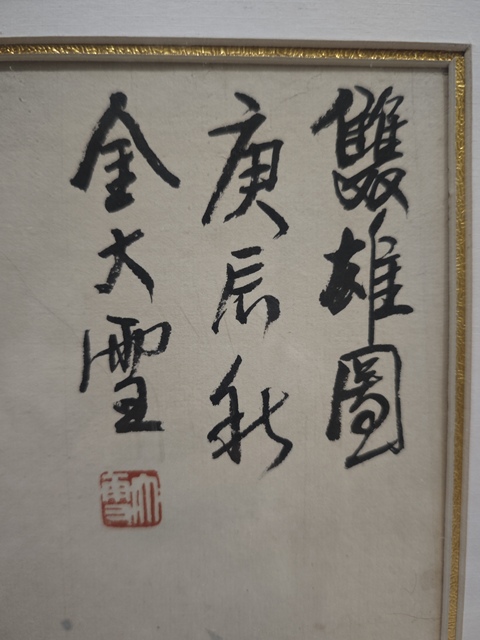 雙雄圖
庚辰秋
金大雪
大雪